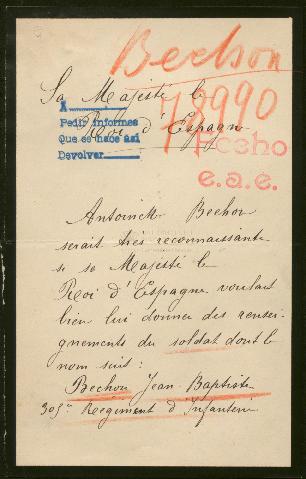 Bechon
Sa Majesté le
18990
Roi d'Espagne
A
Pedir informes
Que se hace así
Devolver
Fecho
e.a.e.
Antoinette Bechon
serait très reconnaissante
si sa Majesté le
Roi d'Espagne voulait
bien lui donner des rensei-
gnements du soldat dont le
nom suit:
Bechon Jean-Baptiste
305e Régiment d'Infanterie